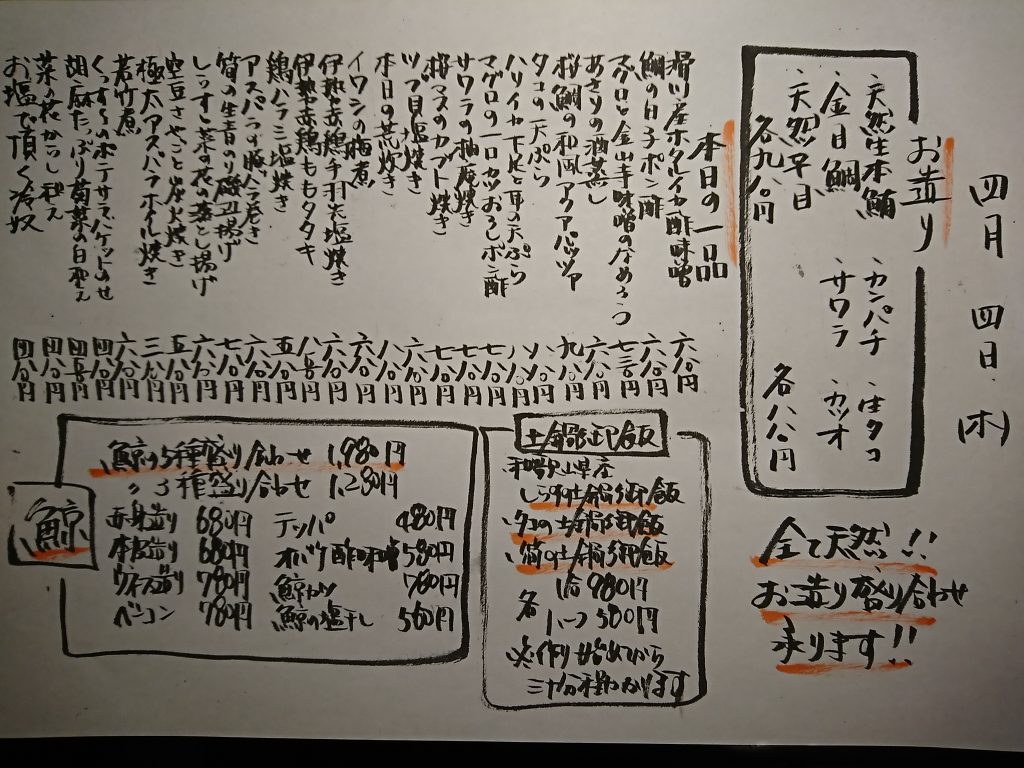 四月 四日 (木)
お造り
天然生本鮪 カンパチ 生タコ
金目鯛 サワラ カツオ
天然平目
各九八〇円
各八八〇円
全て天然!!
お造り盛り合わせ
承ります!!
本日の一品
滑川産ホタルイカ酢味噌 六八〇円
鯛の白子ポン酢 六八〇円
マグロと金山寺味噌のなめろう 七三〇円
あさりの酒蒸し 六八〇円
桜鯛の和風アクアパッツァ 九八〇円
タコの天ぷら
ハリイカ下足と耳の天ぷら
マグロの一口カツおろしポン酢 七八〇円
サワラの柚庵焼き 七八〇円
桜マスのカブト焼き
ツブ貝塩焼き
本日の荒炊き
イワシの梅煮 六八〇円
伊勢赤鶏手羽先塩焼き 六八〇円
伊勢赤鶏ももタタキ
鶏ハラミ塩焼き
アスパラの豚バラ巻き
筍の生青のり磯辺揚げ 七八〇円
しらすと菜の花のかき揚げ 六八〇円
空豆さやごと炭火焼き
極太アスパラホイル焼き
若竹煮 六八〇円
くんせいのポテサラバケットのせ 四八〇円
胡麻たっぷり菊菜の白和え
菜の花からし和え 四八〇円
お塩で頂く冷奴 四八〇円
土鍋御飯
和歌山県産
しらすの土鍋御飯
タコの土鍋御飯
筍の土鍋御飯
各
1合 980円
ハーフ 500円
※作り始めてから
三十分程かかります
鯨
鯨の5種盛り合わせ 1,980円
〃 3種盛り合わせ 1,280円
赤身造り 680円 テッパ 480円
本皮造り 680円 オバケ酢味噌 580円
ウネス造り 780円 鯨カツ 780円
ベーコン 780円 鯨の塩干し 560円